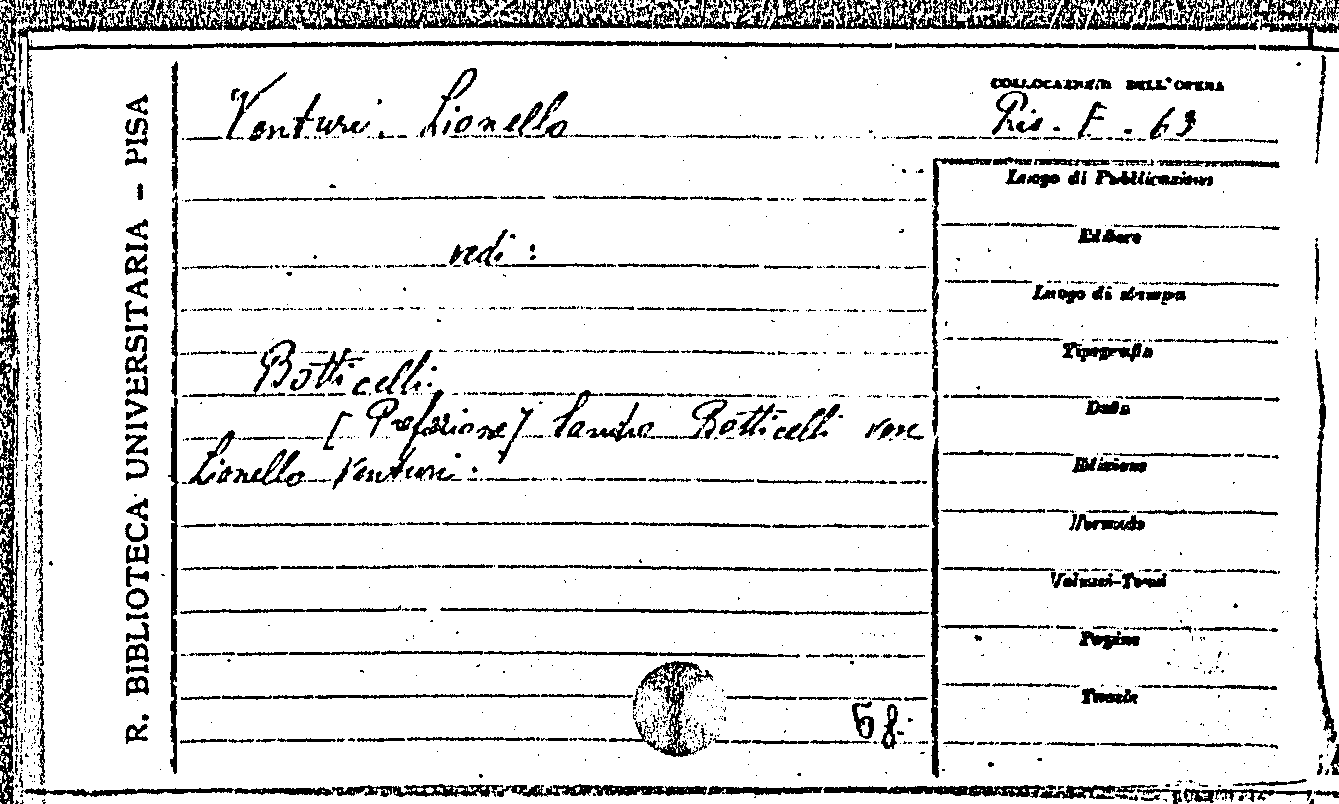 R. BIBLIOTECA UNIVERSITARIA – PISA
Venturi, Lionello
COLLOCAZIONE DELL'OPERA
Ris. F. 63
vedi :
Botticelli.
[Prefazione] Sandro Botticelli von
Lionello Venturi.
Luogo di Pubblicazione
Editore
Luogo di stampa
Tipografia
Data
Edizione
Formato
Volumi-Tomi
Pagine
Tavole